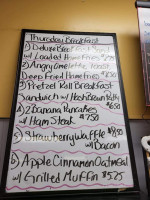 Thursday Breakfast
1) Deluxe Breakfast
w/ Loaded Home Fries
2) Angry Omelette Toast
Deep Fried Home Fries $7.50
3) Pretzel Roll Breakfast
Sandwich w/ Hash Brown Patty
4) 2 Banana Pancakes $6.50
w/ Ham Steak $7.50
5) Strawberry Waffle $8.50
w/ Bacon
6) Apple Cinnamon Oatmeal
w/ Grilled Muffin $5.25